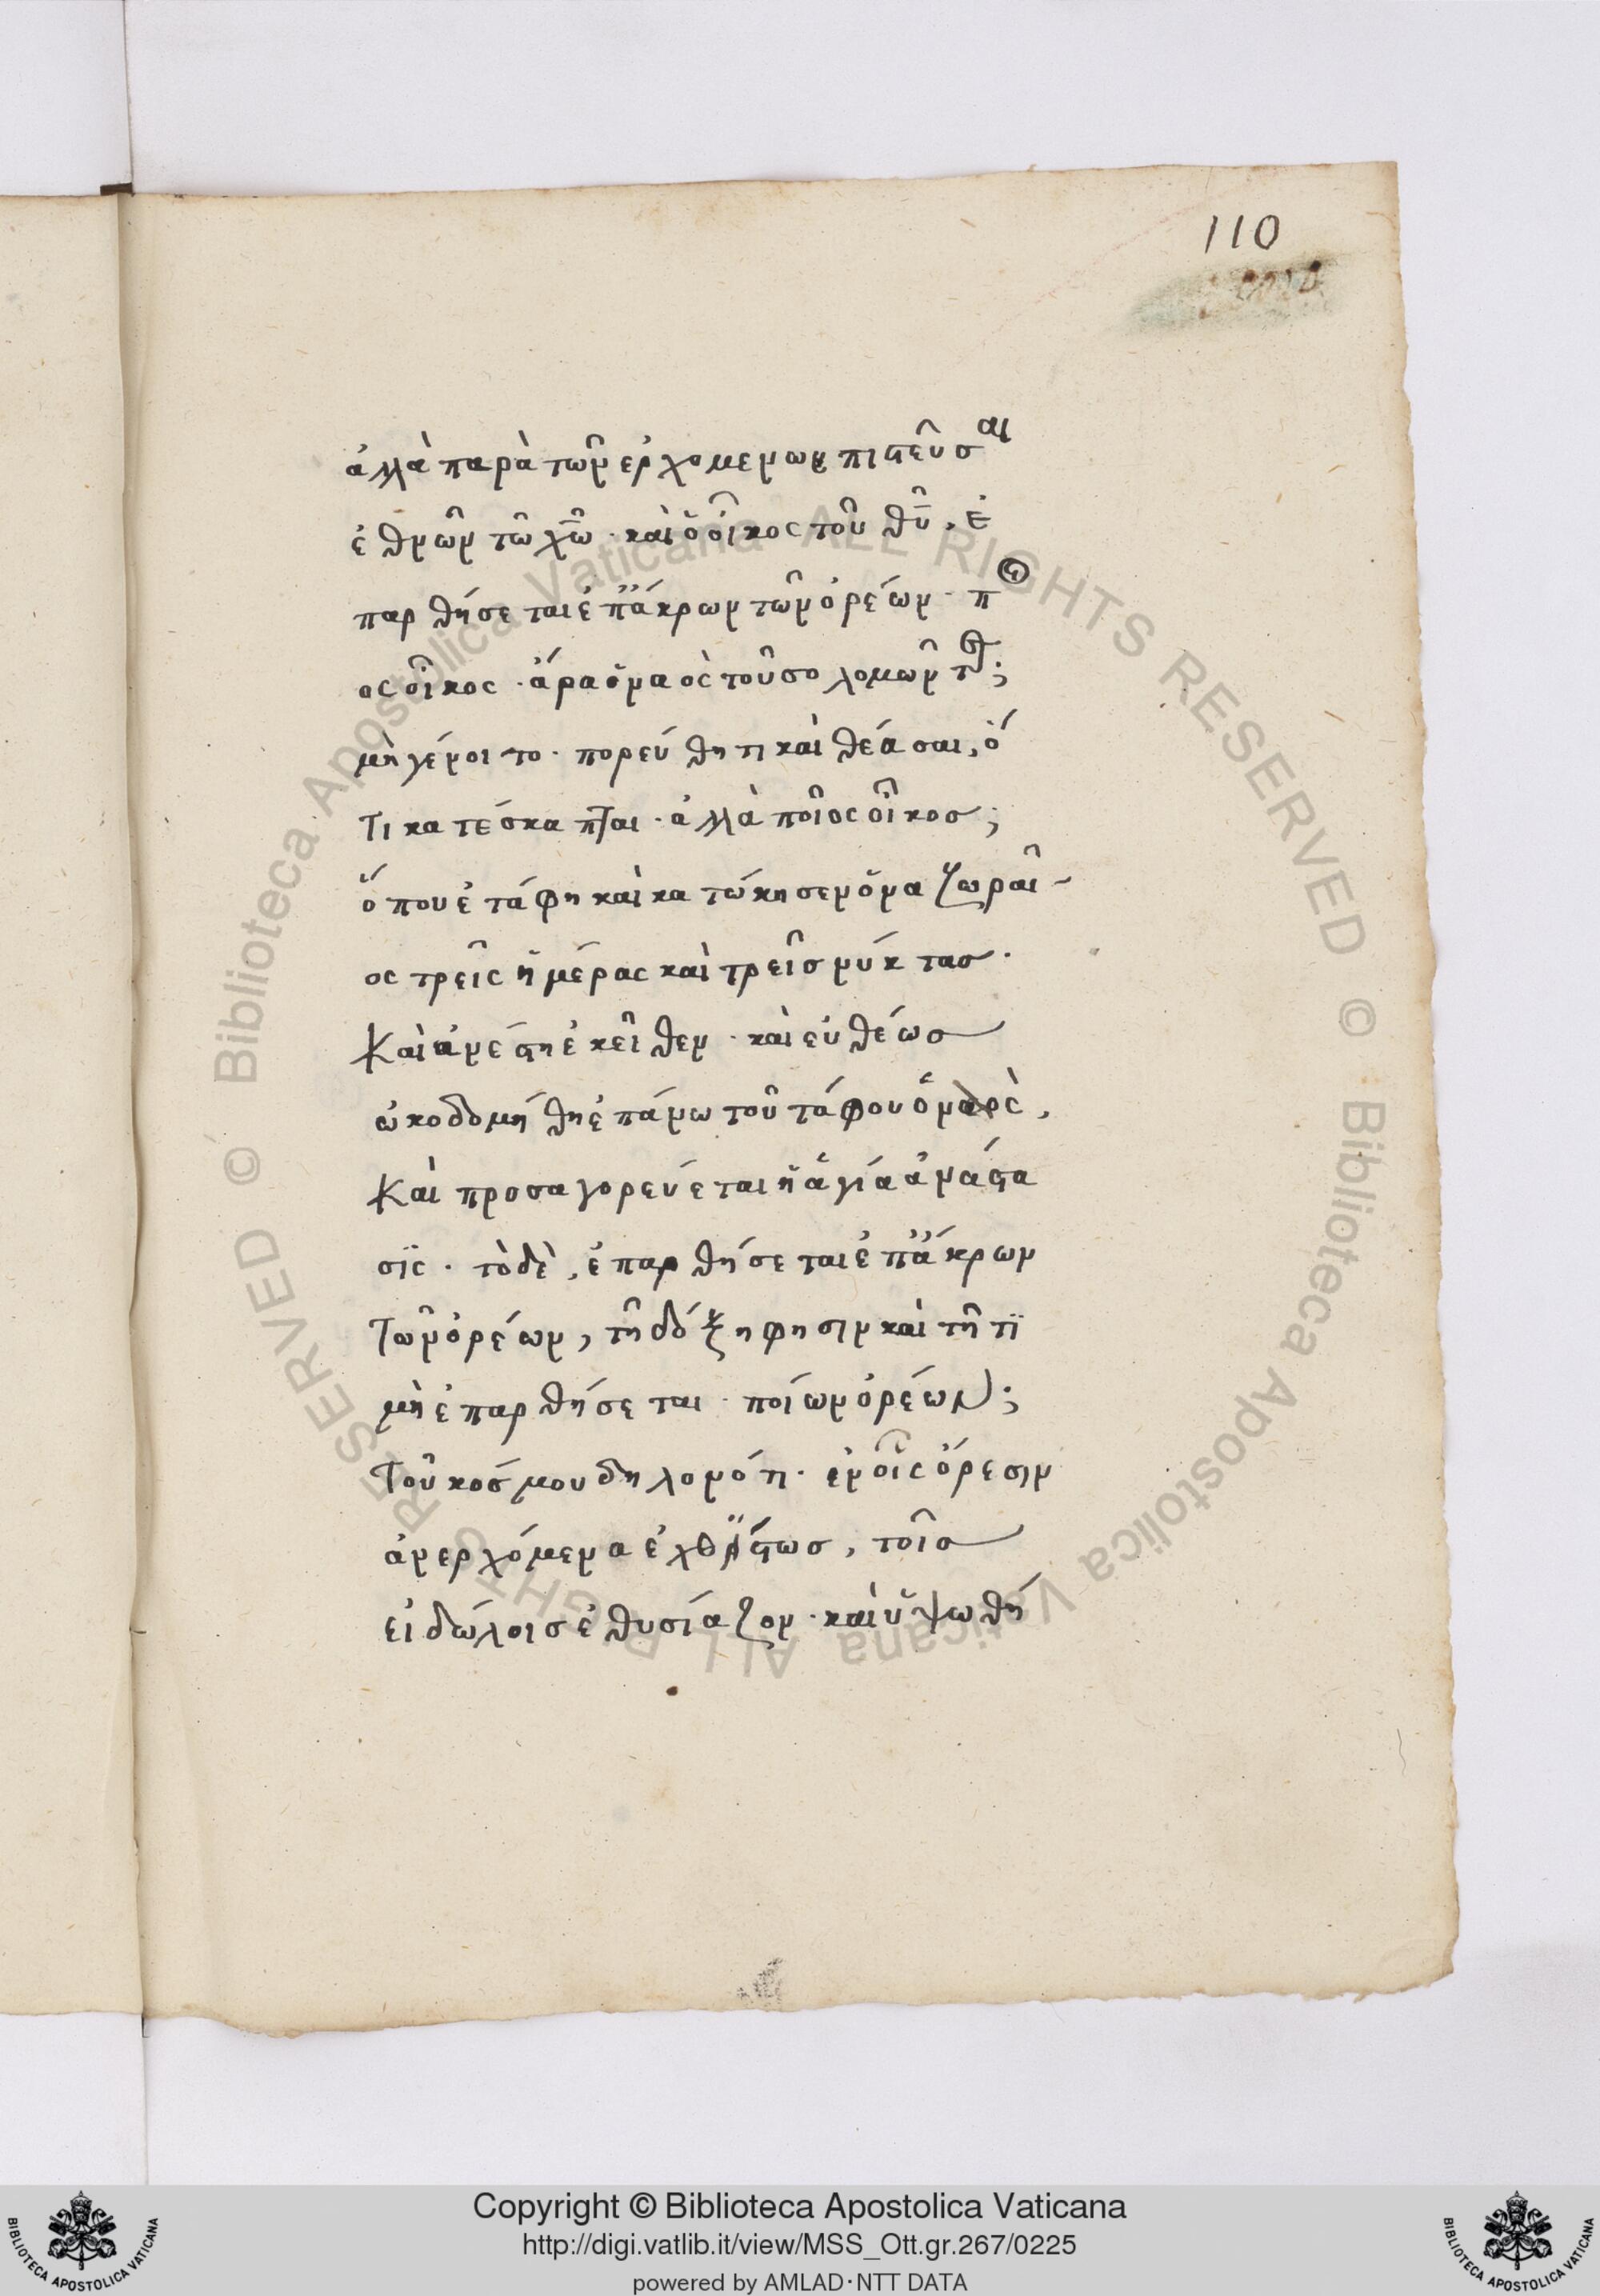 110
ἀλλὰ παρὰ τῶν ἐρχομένων πιστεῦσαι
ἐθνῶν τῶ χω̅. καὶ ὁ οἶκος τοῦ θυ̅, ἐ
παρθήσεται ἐπ' ἄκρων τῶν ὀρέων. π
ος οἶκος. ἄρα ὁ ναὸς τοῦ σολομῶν
μὴ γένοιτο. πορεύθητι καὶ θέασαι, ὅ
τι κατέσκαπται. ἀλλὰ ποῖος οἶκος;
ὅπου ἐτάφη καὶ κατώκησεν ὁ
ος τρεῖς ἡμέρας καὶ τρεῖς νύκτας.
καὶ ἀνέστη ἐκεῖθεν. καὶ εὐθέως
ὠκοδομήθη ἐπάνω τοῦ τάφου ὁ
καὶ προσαγορεύεται ἡ ἁγία ἀνάστα
σϊς. τὸ δὲ, ἐπαρθήσεται ἐπ' ἄκρων
τῶν ὀρέων, τῆ δόξη φησιν καὶ τῆ τϊ
μὴ ἐπαρθήσεται. ποίων ὀρέων;
τοῦ κόσμου δηλονότι. ἐν οἷς ὄρεσιν
ἀνερχόμενα τοῖς
εἰδώλοις ἐθυσίαζον. καὶ ὑψωθή
© Biblioteca Apostolica Vaticana ALL RIGHTS RESERVED
© Biblioteca Apostolica Vaticana ALL RIGHTS RESERVED
Copyright © Biblioteca Apostolica Vaticana
http://digi.vatlib.it/view/MSS_Ott.gr.267/0225
powered by AMLAD·NTT DATA
BIBLIOTECA APOSTOLICA VATICANA
BIBLIOTECA APOSTOLICA VATICANA